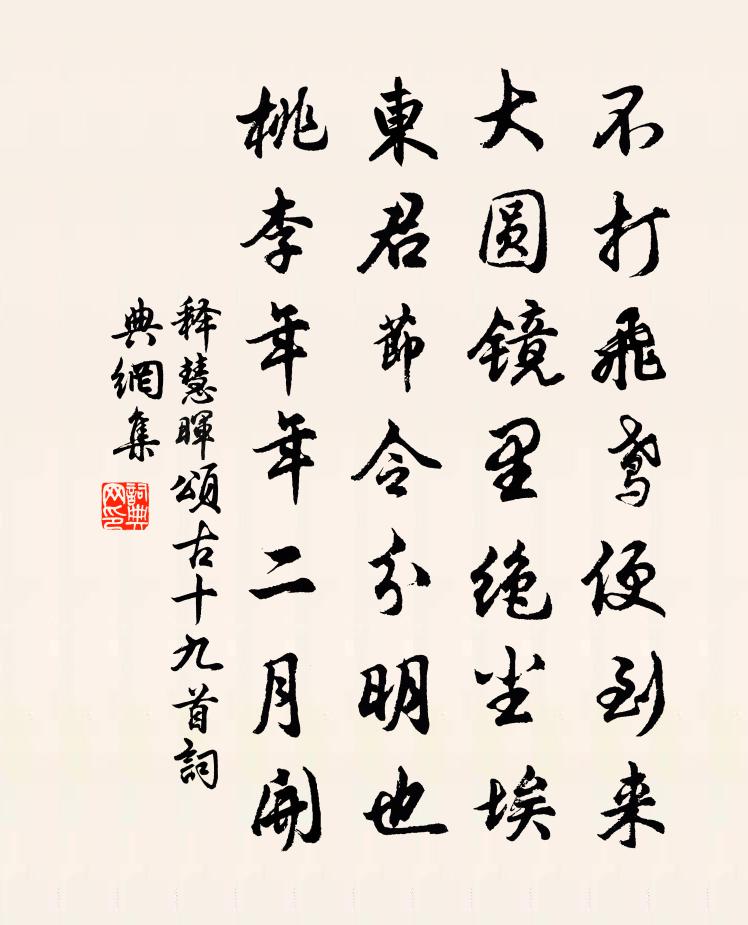 不打飛鸢便到来
大圆镜里绝尘埃
東君節令分明也
桃李年年二月開
释慧暉頌古十九首詞
典網集
詞典网印